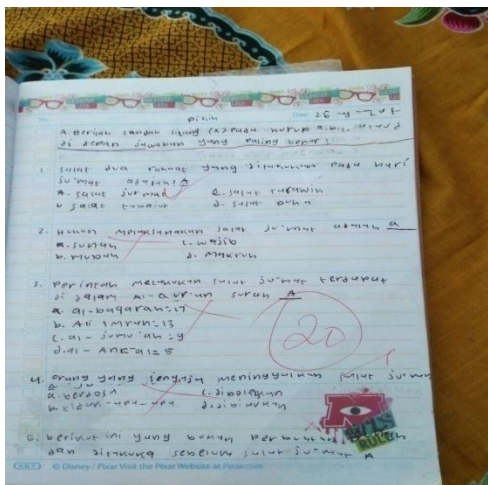 No:
Date: 26
Fikih
A. Berilah tandah silang (x) pada huruf a.b.c. atau d
di depan jawaban yang paling benar!
1. Salat dua rakaat yang dilakukan pada hari
jum'at adalah? A
a. salat jum'at
c. salat tarawih
b. salat
d. salat duha
2. Hukum melaksanakan salat ju'mat adalah a
a. sunah
c. wajib
b. mubah
d. makruh
3. perintah melakukan salat ju'mat terdapat
di dalam Al-Qur'an surah A
a. al-baqarah: 17
b. Ali imran: 13
c. al- jumu'ah: 9
d. al- Anfal= 5
20
4. orang yang sengaja meninggalkan salat ju'mat
a. berdosa
c. dibolehkan
b. tidak-apa-apa
d. dibiarkan
5. berikut ini yang bukan perbuatan
dan dilakukan sebelum salat ju'mat A
RULE!
© Disney / Pixar Visit the Pixar Website at Pixar.com